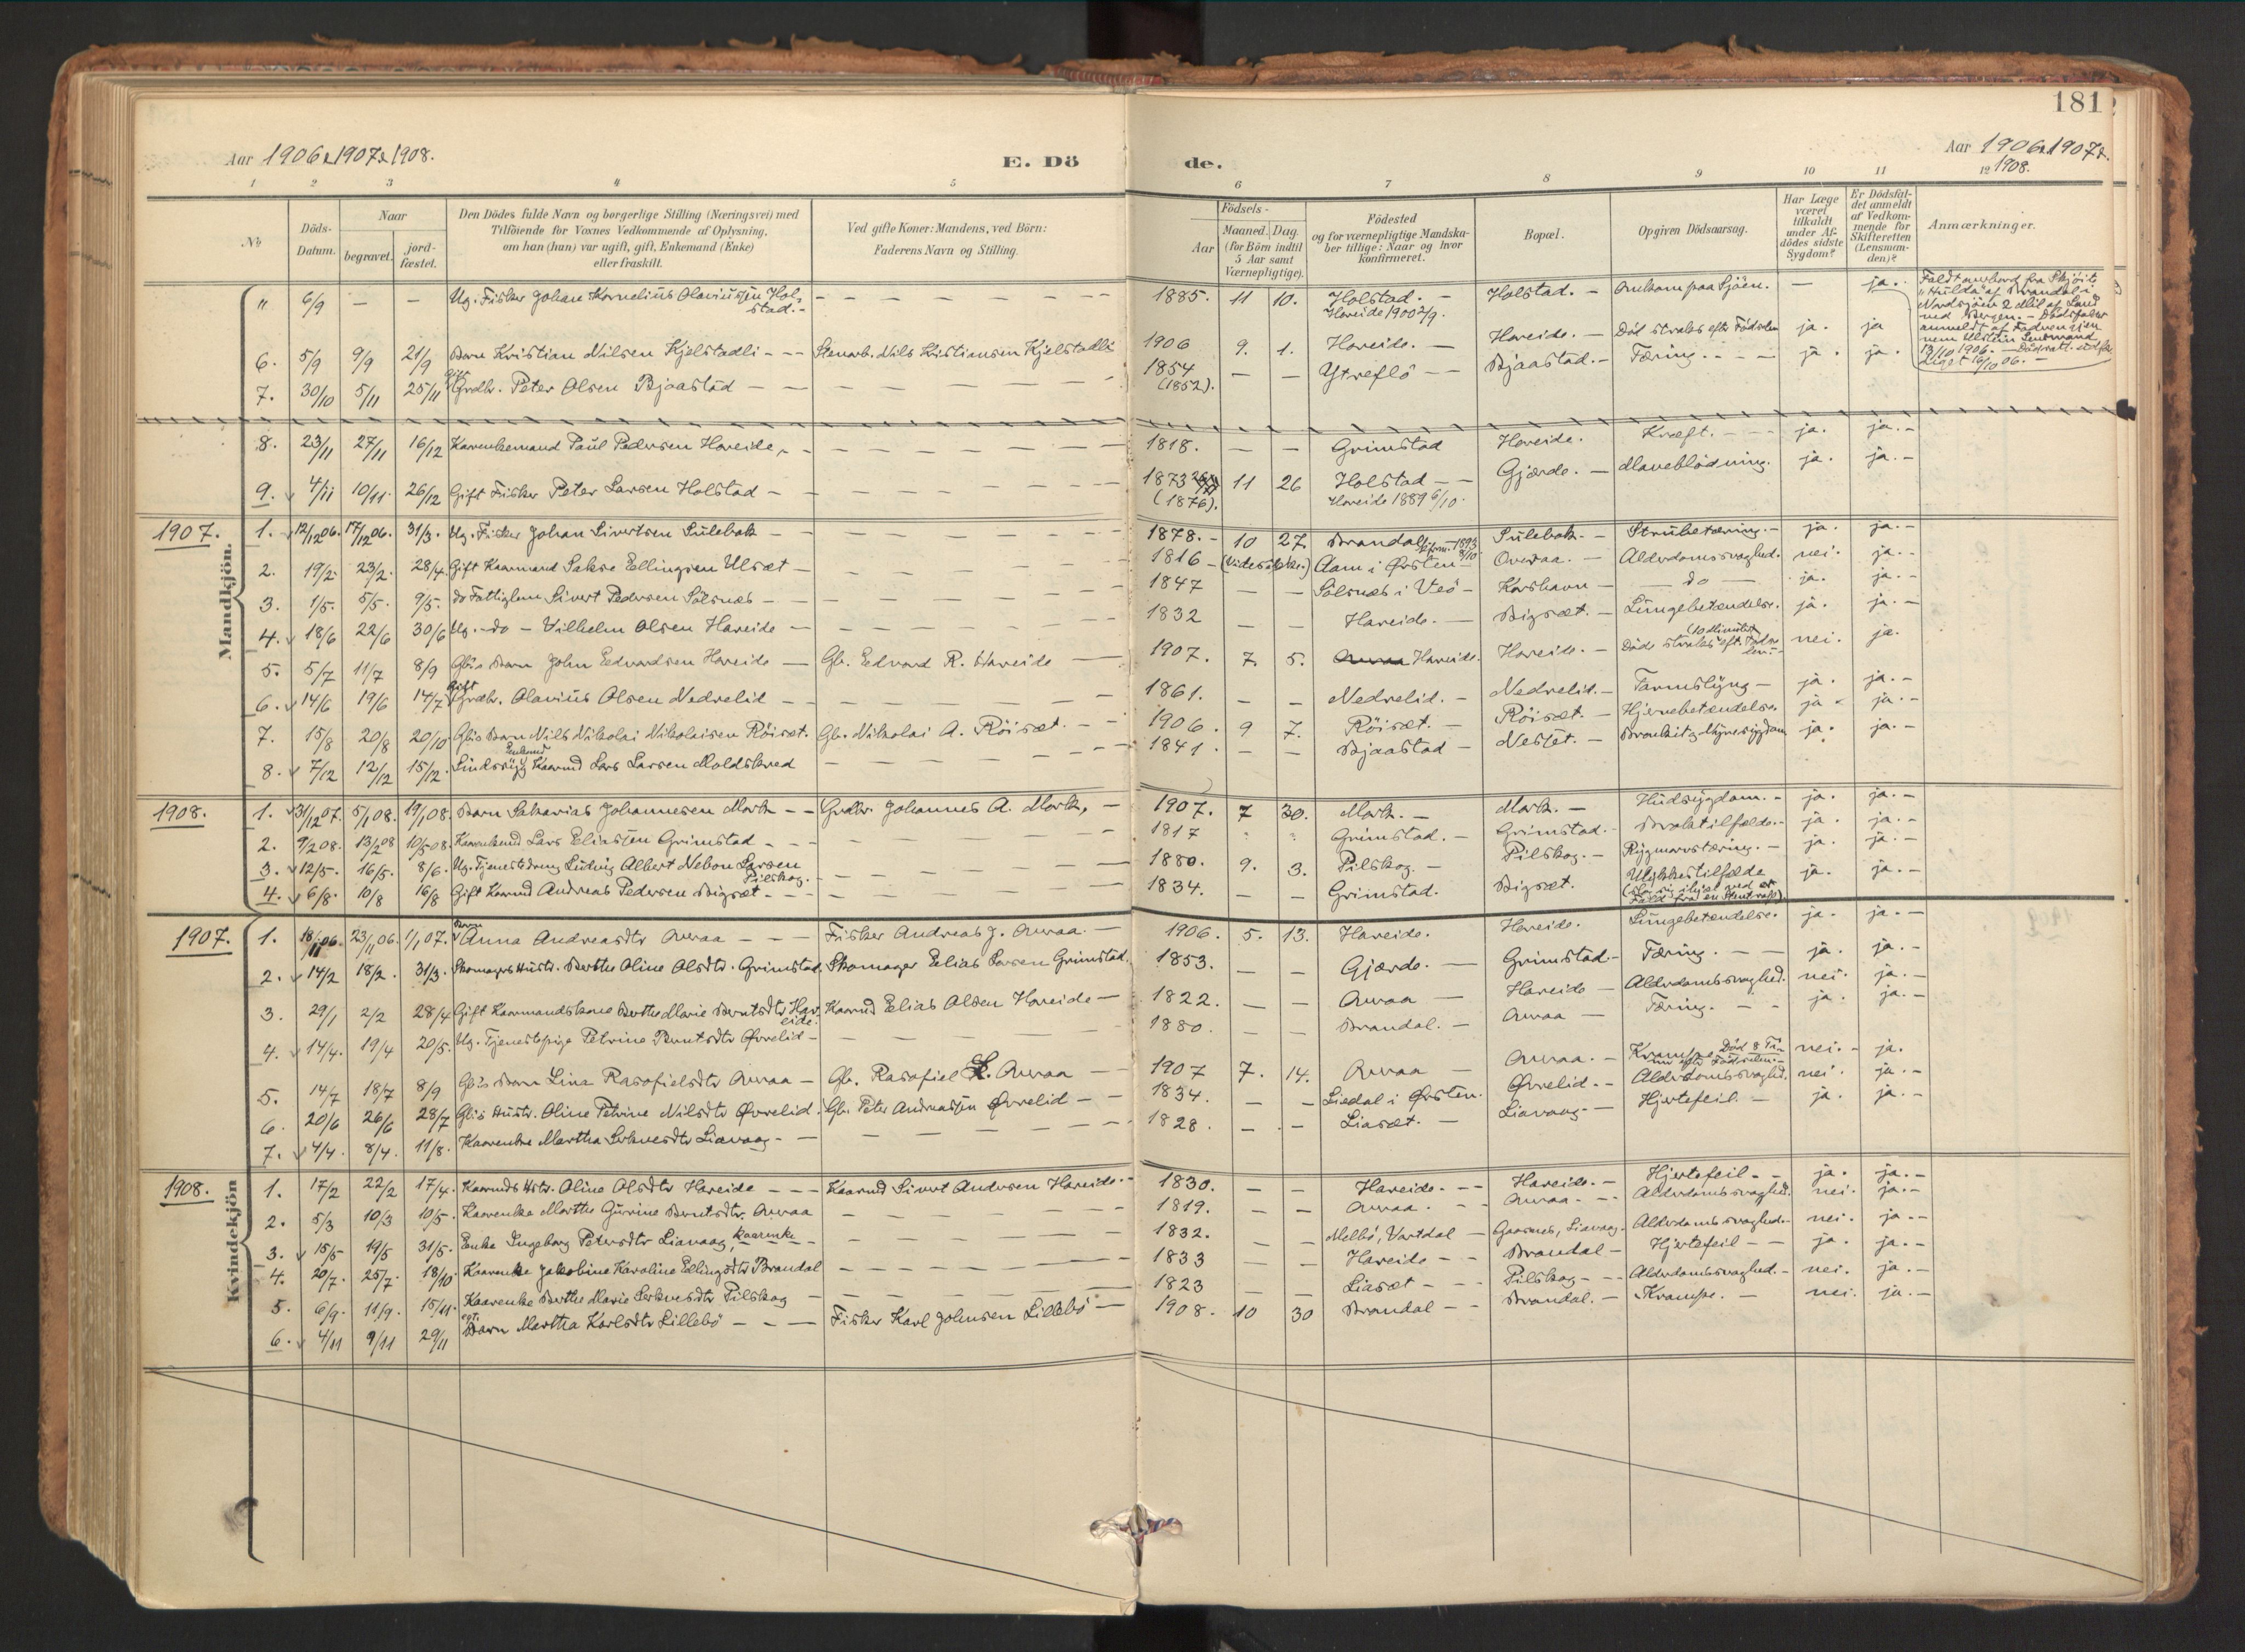 181
Aar 1906 & 1907 & 1908.
E. Dö de.
Aar 1906 & 1907 &
1908.
1 2 3 4 5 6 7 8 9 10 11 12
No
Döds-Datum.
Naar
begravet. jord-fæstet.
Den Dödes fulde Navn og borgerlige Stilling (Næringsvei) med
Tilföiende for Voxnes Vedkommende af Oplysning,
om han (hun) var ugift, gift, Enkemand (Enke)
eller fraskilt.
Ved gifte Koner: Mandens, ved Börn:
Faderens Navn og Stilling.
Födsels-
Aar Maaned. Dag.
(for Börn indtil
5 Aar samt
Værnepligtige).
Födested
og for værnepligtige Mandska-
ber tillige: Naar og hvor
konfirmeret.
Bopæl.
Opgiven Dödsaarsag.
Har Læge
været
tilkaldt
under Af-
dödes sidste
Sygdom?
Er Dödsfal-
det anmeldt
af Vedkom-
mende for
Skifteretten
(Lensman-
den)?
Anmærkninger.
" 6/9 — — Ug. Fisker Johan Kornelius Olaviussen Hol-
stad. — 1885. 11 10. Holstad. — Holstad. — Omkom paa Sjöen. — ja.
Hareide 1900 2/9.
Faldt overbord fra Skjöite
"Hulda" af Brandal i
Nordsjöen 2 Mil af Land
ved Bergen. — Dödsfaldet
anmeldt af Faderen gjen
nem Ulstein Lensmand
13/10 1906. —
16/10 06. —
6. 5/9 9/9 21/9 Barn Kristian Nilsen Kjelstadli — — Stenarb. Nils Kristiansen Kjelstadli 1906 9. 1. Hareide. — Hareide. — Död strax efter Födselen ja. ja
7. 30/10 5/11 25/11 gift Grdbr. Peter Olsen Bjaastad — — 1854 (1852). — — Ytreflö — — Bjaastad. — Tæring. — — ja. ja.
8. 23/11 27/11 16/12 Kaarenkemand Paul Pedersen Hareide, — 1818. — — Grimstad Hareide. Kræft. — — ja. ja. —
9. 4/11 10/11 26/12 Gift Fisker Peter Larsen Holstad — 1873 (1876). 11 26 Holstad — — Gjærde. — Maveblödning. ja. ja. —
Hareide 1889 6/10.
1907.
Mandkjön.
1. 12/12 06. 17/12 06. 31/3. Ug. Fisker Johan Sivertsen Sulebak — 1878. — 10 27. Brandal. 1893 8/10 Sulebak. — Strubetæring. — ja. ja. —
2. 19/2. 23/2. 28/4. Gift Kaarmand Sakse Ellingsen Ulset — 1816 — Aam i Örsten — Overaa. — Alderdomssvaghed. nei. ja. —
3. 1/5. 5/5. 9/5. do Fattiglem Sivert Pedersen Sölsnes — 1847 — — Sölsnes i Veö — Korshavn — — do — ja. ja. —
4. 18/6 22/6 30/6 Ug. — do — Vilhelm Olsen Hareide — 1832 — — Hareide. — Bigset. — Lungebetændelse. ja. ja. —
5. 5/7 11/7 8/9 Gbrs Barn John Edvardsen Hareide — Gbr. Edvard R. Hareide — 1907. 7. 5. Hareide. Hareide. — Döde strax eft. Födse- len. — (10 Minuter) nei. ja.
6. 14/6 19/6 14/7 gift Grdbr. Olavius Olsen Nedrelid — 1861. — — Nedrelid. — Nedrelid. — Tarmslyng — ja. ja. —
7. 15/8 20/8 20/10 Gbrs Barn Nils Nikolai Nikolaisen Röiset. Gbr. Nikolai A. Röiset. — 1906. 9 7. Röiset. — Röiset. — Hjernebetændelse. ja. ja. —
8. 7/12 12/12 15/12. Sindssyg Enkemd Kaarmd Lars Larsen Moldskred 1841. — — Bjaastad — Neset. — Bronkit & Nyresygdom ja. ja. —
1908.
1. 31/12 07. 5/1 08. 19/1 08. Barn Sakarias Johannesen Mork — — Grdbr. Johannes A. Mork, — 1907. 7 30. Mork. — Mork. — Hudsygdom. — ja. ja. —
2. 9/2 08. 13/2 08 10/5 08. Kaarenkemd Lars Eliassen Grimstad — — 1817 " " Grimstad. — Grimstad. — ja. ja. —
3. 12/5. 16/5. 8/6. Ug. Tjenestedreng Ludvig Albert Nebon Larsen
Pilskog. — 1880. 9. 3. Pilskog — Pilskog. — Rygmarvstæring. — ja. ja. —
4. 6/8. 10/8 16/8 Gift Kaarmd Andreas Pedersen Bigset — 1834. — — Grimstad. Bigset. Ulykkestilfælde ja. ja. —
(slog sig ihjel ved et
Fald fra en Stentrap).
Kvindekjön
1907.
1. 18/11 06. 23/11 06. 1/1 07. Barn Anna Andreasdtr Overaa — — Fisker Andreas J. Overaa — 1906. 5. 13. Hareide. Hareide. Lungebetændelse. ja. ja. —
2. 14/2 18/2. 31/3. Skomagers Hustr. Berthe Oline Olsdtr. Grimstad. Skomager Elias Larsen Grimstad. 1853. — — Gjærde. — Grimstad. — Tæring. — — ja. ja. —
3. 29/1 2/2 28/4 Gift Kaarmandskone Berthe Marie Berntsdtr Har-
eide. Kaarmd Elias Olsen Hareide — 1822. — — Overaa — Hareide — Alderdomssvaghed. nei. ja. —
4. 14/4. 19/4 20/5. Ug. Tjenestepige Petrine Berntsdtr Övrelid — 1880. — — Brandal. — Overaa — Tæring. — — ja. ja. —
5. 14/7 18/7 8/9 Gbrs Barn Lina Rasofielsdtr Overaa — Gbr. Rasofiel L. Overaa — 1907 7. 14. Overaa — Overaa. — Krampe. Död 8 Ti-
mer efter Födselen. — nei. — ja.
6. 20/6 26/6 28/7 Gbrs Hustr. Oline Petrine Nilsdtr Övrelid. Gbr. Peter Andreassen Övrelid — 1834. — — Liadal i Örsten. Övrelid. — Alderdomssvaghed. nei. ja. —
7. 4/4. 8/4. 11/8. Kaarenke Martha Serkvesdtr Liavaag — 1828. — — Liaset. — Liavaag. — Hjertefeil. — ja. ja. —
1908.
1. 17/2 22/2 17/4. Kaarmds Hstr. Oline Olsdtr Hareide — — Kaarmd Sivert Andersen Hareide. — 1830. — — Hareide. — — Hareide. — Hjertefeil — — ja. ja. —
2. 5/3 10/3 10/5. Kaarenke Marthe Gurine Berntsdtr. Overaa 1819. — — Overaa. — Overaa. — — Alderdomssvaghed. nei. ja. —
3. 15/5 19/5 31/5. Enke Ingeborg Petersdtr Liavaag, Kaarenke — 1832. — — Melbö, Vartdal — Gaasnes, Liavaag. Alderdomssvaghed. — nei. ja. —
4. 20/7. 25/7. 18/10. Kaarenke Jakobine Karoline Ellingsdtr Brandal 1833 — — Hareide — — Brandal — Hjertefeil — — ja. ja. —
5. 6/9. 11/9. 15/11. Kaarenke Berthe Marie Serkvesdtr Pilskog 1823 — — Liaset — — Pilskog — — Alderdomssvaghed. — nei. ja. —
6. 4/11 9/11 29/11 egt. Barn Martha Karlsdtr Lillebö — — Fisker Karl Johnsen Lillebö — 1908. 10 30 Brandal — — Brandal. — Krampe. — nei. ja. —